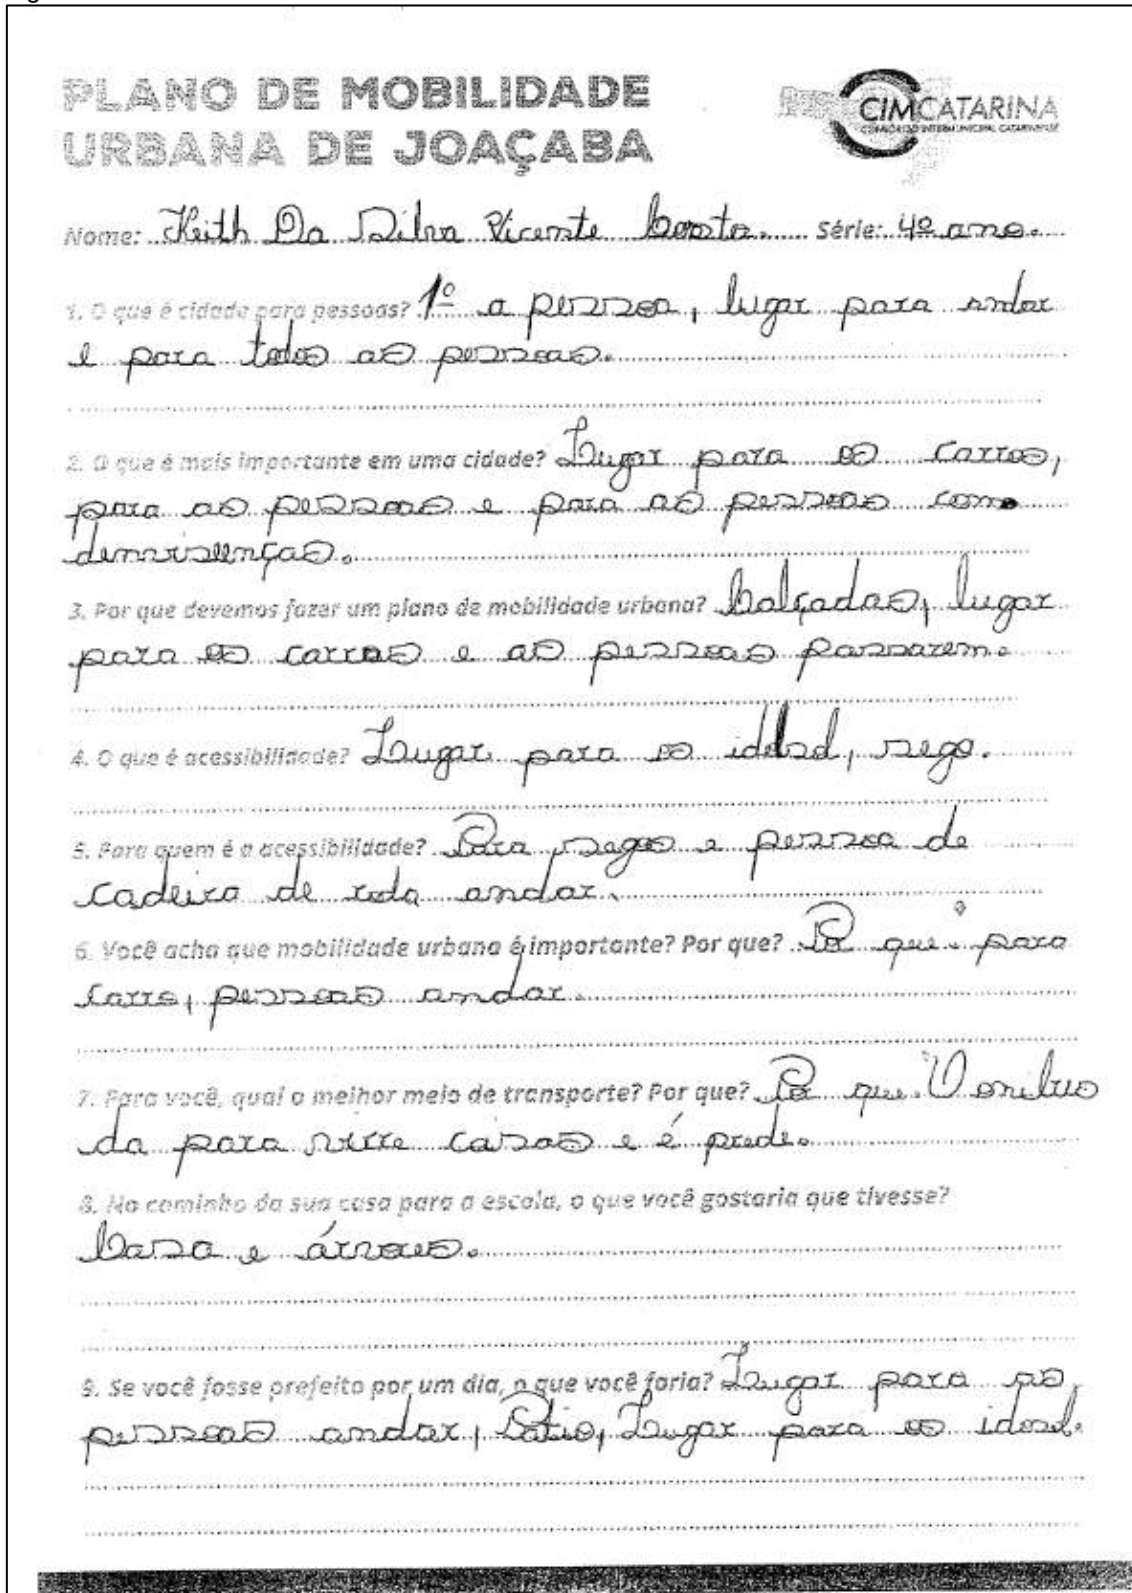 PLANO DE MOBILIDADE
URBANA DE JOAÇABA
CIMCATARINA
CONSÓRCIO INTERMUNICIPAL CATARINENSE
Nome: Keith Da Silva Vicente Série: 4º ano.
1. O que é cidade para pessoas? 1º a pessoa, lugar para andar
e para todos as pessoas.
2. O que é mais importante em uma cidade? Lugar para os carros,
para as pessoas e para as pessoas com
3. Por que devemos fazer um plano de mobilidade urbana? Calçadas, lugar
para os carros e as pessoas passarem.
4. O que é acessibilidade? Lugar para os sego.
5. Para quem é a acessibilidade? Para segos e pessoa de
cadeira de roda andar.
6. Você acha que mobilidade urbana é importante? Por que? Por que para
carro, pessoas andar.
7. Para você, qual o melhor meio de transporte? Por que? Por que O
da para casas e é
8. No caminho da sua casa para a escola, o que você gostaria que tivesse?
Casa e
9. Se você fosse prefeito por um dia, o que você faria? Lugar para as
pessoas andar, Patio, Lugar para os